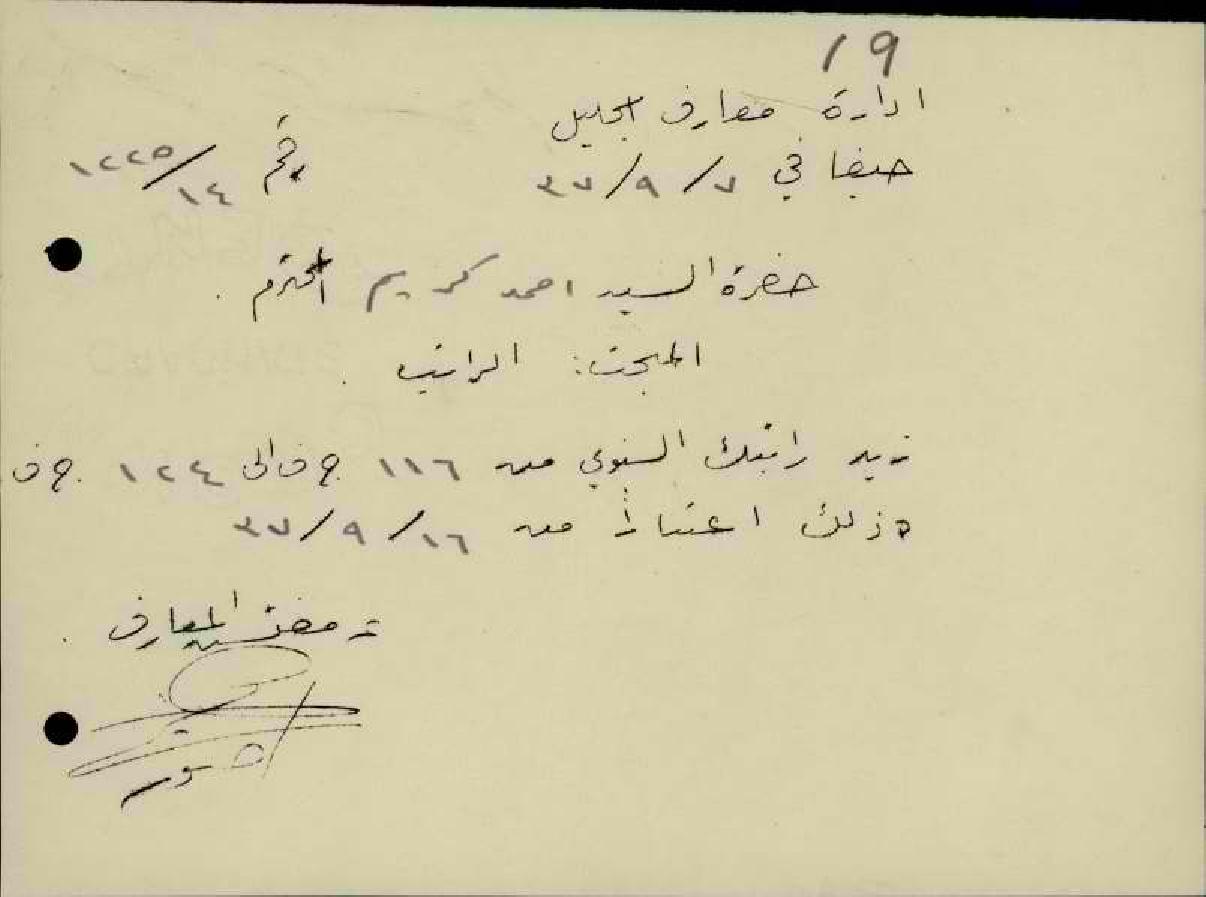 19
ادارة معارف الجليل
حيفا في ٧/٩/٣٧ رقم ١٤/١٢٢٥
حضرة السيد احمد كريم المحترم .
المبحث: الراتب .
زيد راتبك السنوي من ١١٦ ج ف الى ١٢٤ ج ف.
وذلك اعتباراً من ١٦/٩/٣٧
مفتش المعارف .